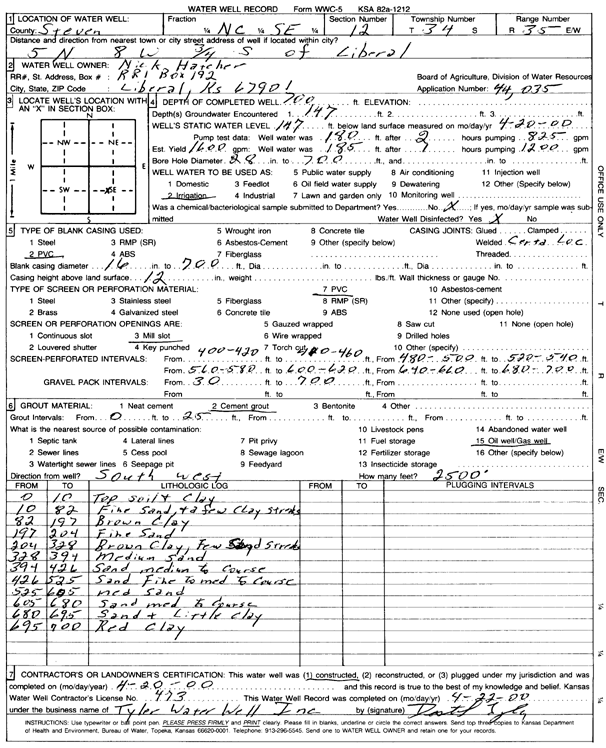 WATER WELL RECORD Form WWC-5 KSA 82a-1212
1 LOCATION OF WATER WELL: Fraction Section Number Township Number Range Number
County: Steven ¼ NC ¼ SE ¼ 12 T 34 S R 35 E/W
Distance and direction from nearest town or city street address of well if located within city?
5 N 8 W 3/4 S of Liberal
2 WATER WELL OWNER: Nick Hatcher
RR#, St. Address, Box # : RR1 Box 192 Board of Agriculture, Division of Water Resources
City, State, ZIP Code : Liberal, Ks 67901 Application Number: 44,035
3 LOCATE WELL'S LOCATION WITH AN "X" IN SECTION BOX:
N
NW NE
W E
SW SE
X
S
1 Mile
4 DEPTH OF COMPLETED WELL 700 ft. ELEVATION:
Depth(s) Groundwater Encountered 1. 147 ft. 2. ft. 3. ft.
WELL'S STATIC WATER LEVEL 147 ft. below land surface measured on mo/day/yr 4-20-00
Pump test data: Well water was 180 ft. after 2 hours pumping 825 gpm
Est. Yield 1600 gpm: Well water was 185 ft. after 1 hours pumping 1200 gpm
Bore Hole Diameter 28 in. to 700 ft., and in. to ft.
WELL WATER TO BE USED AS: 5 Public water supply 8 Air conditioning 11 Injection well
1 Domestic 3 Feedlot 6 Oil field water supply 9 Dewatering 12 Other (Specify below)
2 Irrigation 4 Industrial 7 Lawn and garden only 10 Monitoring well
Was a chemical/bacteriological sample submitted to Department? Yes No X ; If yes, mo/day/yr sample was submitted
Water Well Disinfected? Yes X No
5 TYPE OF BLANK CASING USED: 5 Wrought iron 8 Concrete tile CASING JOINTS: Glued Clamped
1 Steel 3 RMP (SR) 6 Asbestos-Cement 9 Other (specify below) Welded Certa Loc
2 PVC 4 ABS 7 Fiberglass Threaded
Blank casing diameter 16 in. to 700 ft., Dia in. to ft., Dia in. to ft.
Casing height above land surface 12 in., weight lbs./ft. Wall thickness or gauge No.
TYPE OF SCREEN OR PERFORATION MATERIAL: 7 PVC 10 Asbestos-cement
1 Steel 3 Stainless steel 5 Fiberglass 8 RMP (SR) 11 Other (specify)
2 Brass 4 Galvanized steel 6 Concrete tile 9 ABS 12 None used (open hole)
SCREEN OR PERFORATION OPENINGS ARE: 5 Gauzed wrapped 8 Saw cut 11 None (open hole)
1 Continuous slot 3 Mill slot 6 Wire wrapped 9 Drilled holes
2 Louvered shutter 4 Key punched 7 Torch cut 10 Other (specify)
400-420 -460
SCREEN-PERFORATED INTERVALS: From ft. to ft., From 480-500 ft. to 520-540 ft.
From 560-580 ft. to 600-620 ft., From 640-660 ft. to 680-700 ft.
GRAVEL PACK INTERVALS: From 30 ft. to 700 ft., From ft. to ft.
From ft. to ft., From ft. to ft.
6 GROUT MATERIAL: 1 Neat cement 2 Cement grout 3 Bentonite 4 Other
Grout Intervals: From 0 ft. to 25 ft., From ft. to ft., From ft. to ft.
What is the nearest source of possible contamination: 10 Livestock pens 14 Abandoned water well
1 Septic tank 4 Lateral lines 7 Pit privy 11 Fuel storage 15 Oil well/Gas well
2 Sewer lines 5 Cess pool 8 Sewage lagoon 12 Fertilizer storage 16 Other (specify below)
3 Watertight sewer lines 6 Seepage pit 9 Feedyard 13 Insecticide storage
Direction from well? South west How many feet? 2500'
FROM TO LITHOLOGIC LOG FROM TO PLUGGING INTERVALS
0 10 Top soil + Clay
10 82 Fine Sand, + a few Clay streks
82 197 Brown Clay
197 204 Fine Sand
204 328 Brown Clay, Few Sand streeks
328 394 Medium Sand
394 426 Sand medium to Course
426 525 Sand Fine to med to Course
525 605 med Sand
605 680 Sand med to Course
680 695 Sand + Little Clay
695 700 Red Clay
7 CONTRACTOR'S OR LANDOWNER'S CERTIFICATION: This water well was (1) constructed, (2) reconstructed, or (3) plugged under my jurisdiction and was
completed on (mo/day/year) 4-20-00 and this record is true to the best of my knowledge and belief. Kansas
Water Well Contractor's License No. 473 This Water Well Record was completed on (mo/day/yr) 4-22-00
under the business name of Tyler Water Well Inc by (signature)
INSTRUCTIONS: Use typewriter or ball point pen. PLEASE PRESS FIRMLY and PRINT clearly. Please fill in blanks, underline or circle the correct answers. Send top three copies to Kansas Department
of Health and Environment, Bureau of Water, Topeka, Kansas 66620-0001. Telephone: 913-296-5545. Send one to WATER WELL OWNER and retain one for your records.
OFFICE USE ONLY
T
R
E/W
SEC.
¼
¼
¼